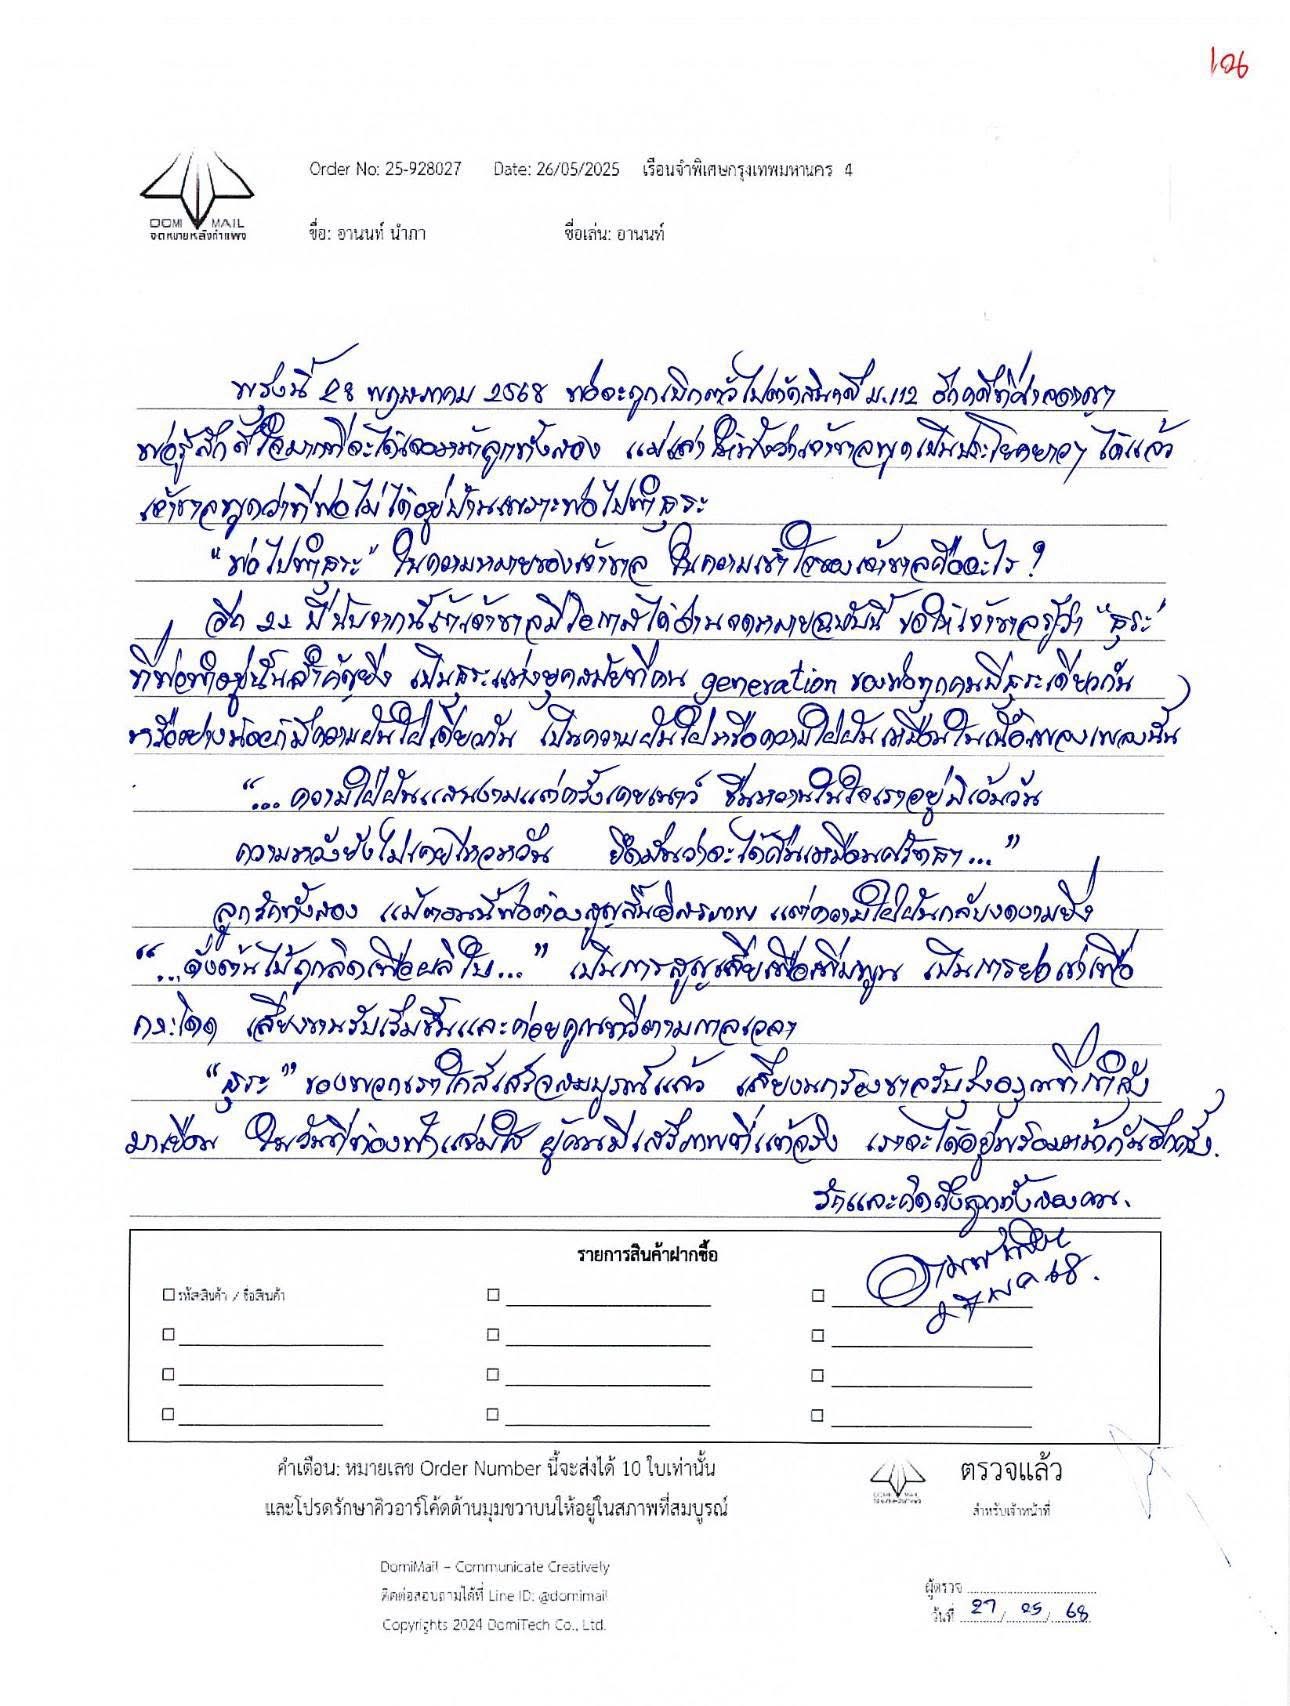 106
Order No: 25-928027 Date: 26/05/2025 เรือนจำพิเศษกรุงเทพมหานคร 4
DOMI MAIL
จดหมายหลังกำแพง
ชื่อ: อานนท์ นำภา ชื่อเล่น: อานนท์
พรุ่งนี้ 28 พฤษภาคม 2568 พ่อจะถูกเบิกตัวไปตัดสินคดี ม.112 อีกคดีที่ศาลอาญา
พ่อรู้สึกดีใจมากที่จะได้เจอหน้าลูกทั้งสอง แม่เล่าให้ฟังว่าเจ้าขาลพูดเป็นประโยคยาวๆ ได้แล้ว
เจ้าขาลพูดว่าที่พ่อไม่ได้อยู่บ้านเพราะพ่อไปทำธุระ
"พ่อไปทำธุระ" ในความหมายของเจ้าขาล ในความเข้าใจของเจ้าขาลคืออะไร?
อีก 22 ปี นับจากนี้ถ้าเจ้าขาลมีโอกาสได้อ่านจดหมายฉบับนี้ ขอให้เจ้าขาลรู้ว่า "ธุระ"
ที่พ่อทำอยู่นั้นสำคัญยิ่ง เป็นธุระแห่งยุคสมัยที่คน generation ของพ่อทุกคนมีธุระเดียวกัน
หรืออย่างน้อยก็มีความฝันใฝ่เดียวกัน เป็นความฝันใฝ่หรือความใฝ่ฝันเหมือนในเนื้อเพลงเพลงนั้น
"...ความใฝ่ฝันแสนงามแต่ครั้งเคยเนาว์ ชื่นหวานในใจเราอยู่มิเว้นวัน
ความหวังยังไม่เคยไหวหวั่น ยึดมั่นว่าจะได้คืนเหมือนศรัทธา..."
ลูกรักทั้งสอง แม้ตอนนี้พ่อต้องสูญสิ้นอิสรภาพ แต่ความใฝ่ฝันกลับงดงามยิ่ง
"...ดั่งต้นไม้ถูกลิดเพื่อผลิใบ..." เป็นการสูญเสียเพื่อเพิ่มพูน เป็นการย่อเข่าเพื่อ
กระโดด เสียงขานรับเริ่มขึ้นและค่อยคูณทวีตามกาลเวลา
"ธุระ" ของพวกเราใกล้เสร็จสมบูรณ์แล้ว เสียงนกร้องขาลรับรุ่งอรุณที่กำลัง
มาเยือน ในวันที่ท้องฟ้าแจ่มใส ผู้คนมีเสรีภาพที่แท้จริง เราจะได้อยู่พร้อมหน้ากันอีกครั้ง.
รักและคิดถึงลูกทั้งสองคน.
อานนท์ นำภา
27 พ.ค. 68.
รายการสินค้าฝากซื้อ
รหัสสินค้า / ชื่อสินค้า
คำเตือน: หมายเลข Order Number นี้จะส่งได้ 10 ใบเท่านั้น
และโปรดรักษาคิวอาร์โค้ดด้านมุมขวาบนให้อยู่ในสภาพที่สมบูรณ์
ตรวจแล้ว
สำหรับเจ้าหน้าที่
DomiMail – Communicate Creatively
ติดต่อสอบถามได้ที่ Line ID: @domimail
Copyrights 2024 DomiTech Co., Ltd.
ผู้ตรวจ
วันที่ 27 / 05 / 68